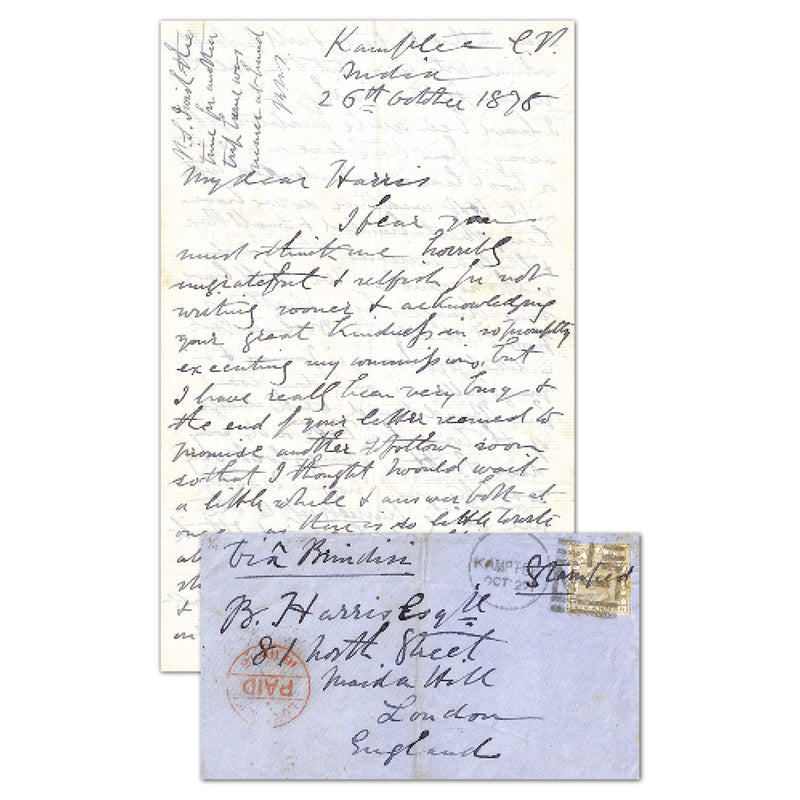 Kamptee C.P.
India
26th October 1878
P.S. I wish the
time for another
trip home was
nearer at hand
My dear Harris
I fear you
must think me horribly
ungrateful & selfish for not
writing sooner & acknowledging
your great kindness in so promptly
executing my commissions, but
I have really been very busy &
the end of your letter seemed to
promise another to follow soon
so that I thought I would wait
a little while & answer both at
as there is so little
Via Brindisi
KAMPTEE
OCT 2
Stamped
B. Harris Esqre
81 North Street
Maida Hill
London
England
PAID